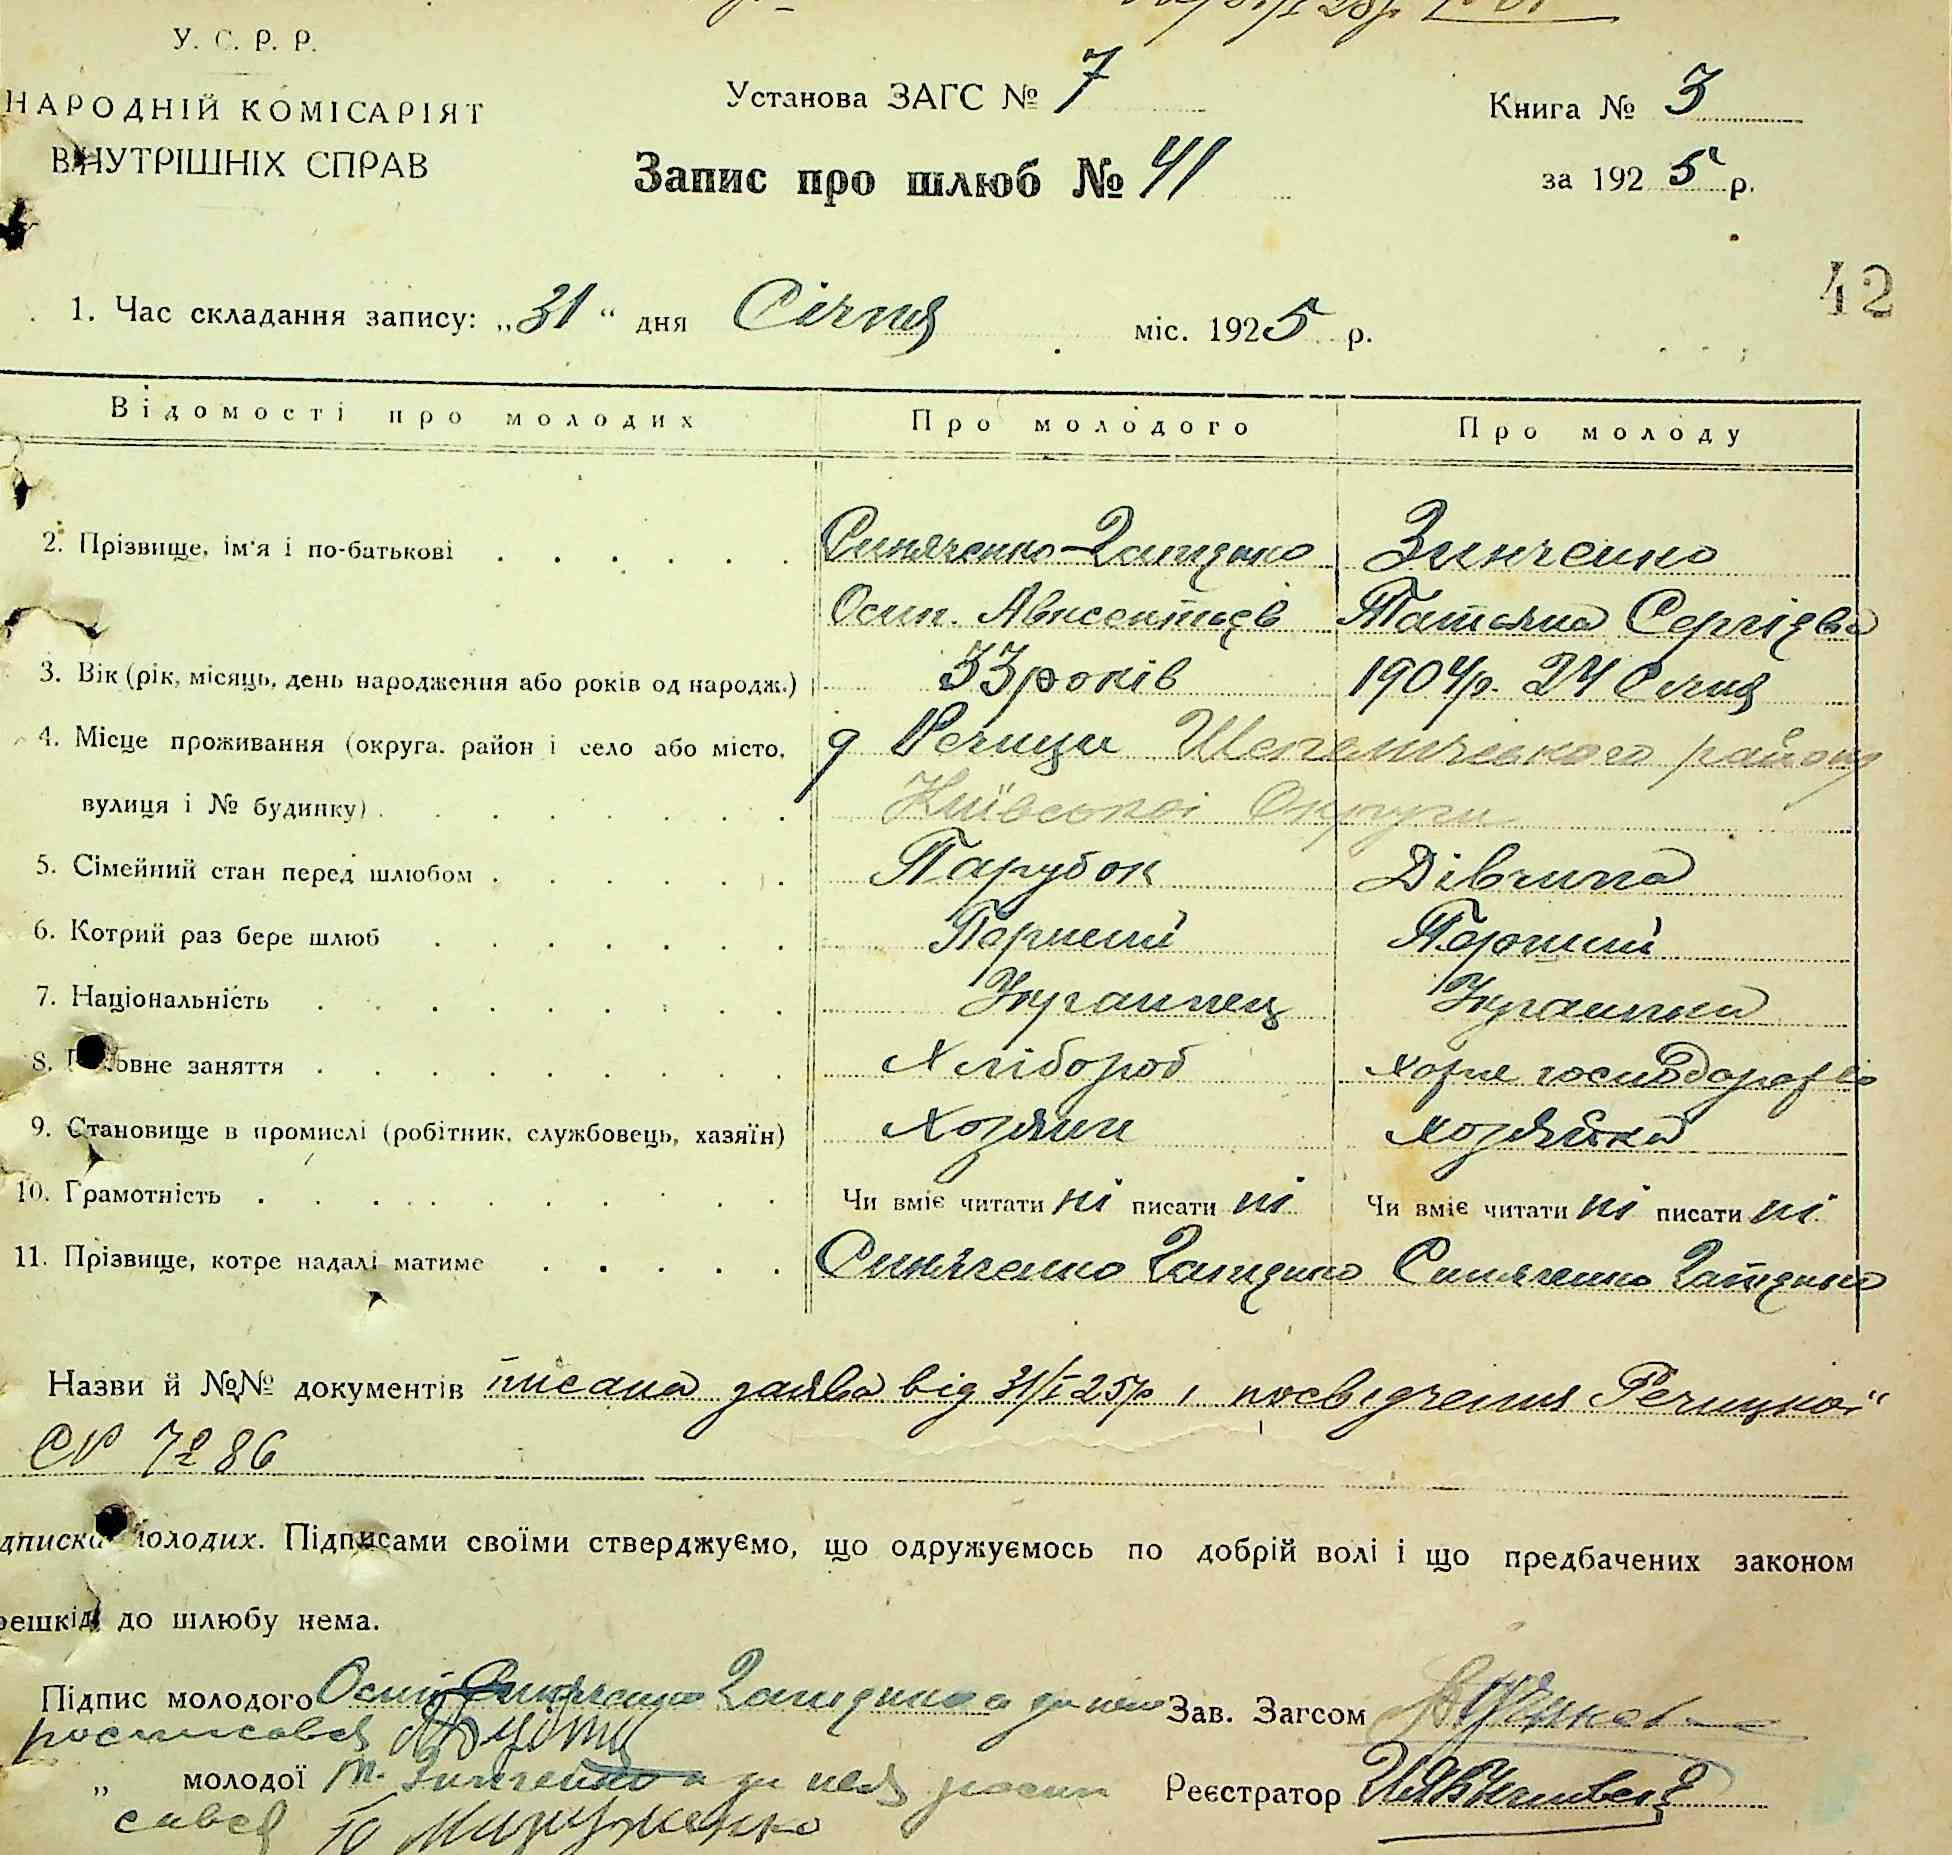 У. С. Р. Р.
НАРОДНІЙ КОМІСАРІЯТ
ВНУТРІШНІХ СПРАВ
Установа ЗАГС № 7
Запис про шлюб № 41
Книга № 3
за 1925 р.
42
1. Час складання запису: „31“ дня Січня міс. 1925 р.
Відомості про молодих Про молодого Про молоду
2. Прізвище, ім'я і по-батькові Синяченко-Гайденко Зинченко
Осип. Авксентієв Татьяна Сергієва
3. Вік (рік, місяць, день народження або років од народж.) 33 років 1904 р. 24 Січня
4. Місце проживання (округа, район і село або місто, д Речищи району
вулиця і № будинку) Київської Округи
5. Сімейний стан перед шлюбом Парубок Дівчина
6. Котрий раз бере шлюб Перший Перший
7. Національність Украинец Украинка
8. Г овне заняття Хлібороб господарство
9. Становище в промислі (робітник, службовець, хазяїн) Хозяин хозяйка
10. Грамотність Чи вміє читати ні писати ні Чи вміє читати ні писати ні
11. Прізвище, котре надалі матиме Синяченко Гайденко Синяченко Гайденко
Назви й №№ документів писана заява від 31/I 25 р і посвідчення Речицкоі
СР 7286
дписка молодих. Підписами своїми стверджуємо, що одружуємось по добрій волі і що предбачених законом
решкід до шлюбу нема.
Підпис молодого Осип Синяченко Гайденко а за него
росписався
Зав. Загсом
„ молодої Т. Зинченко а за нея роспи
сався
Реєстратор